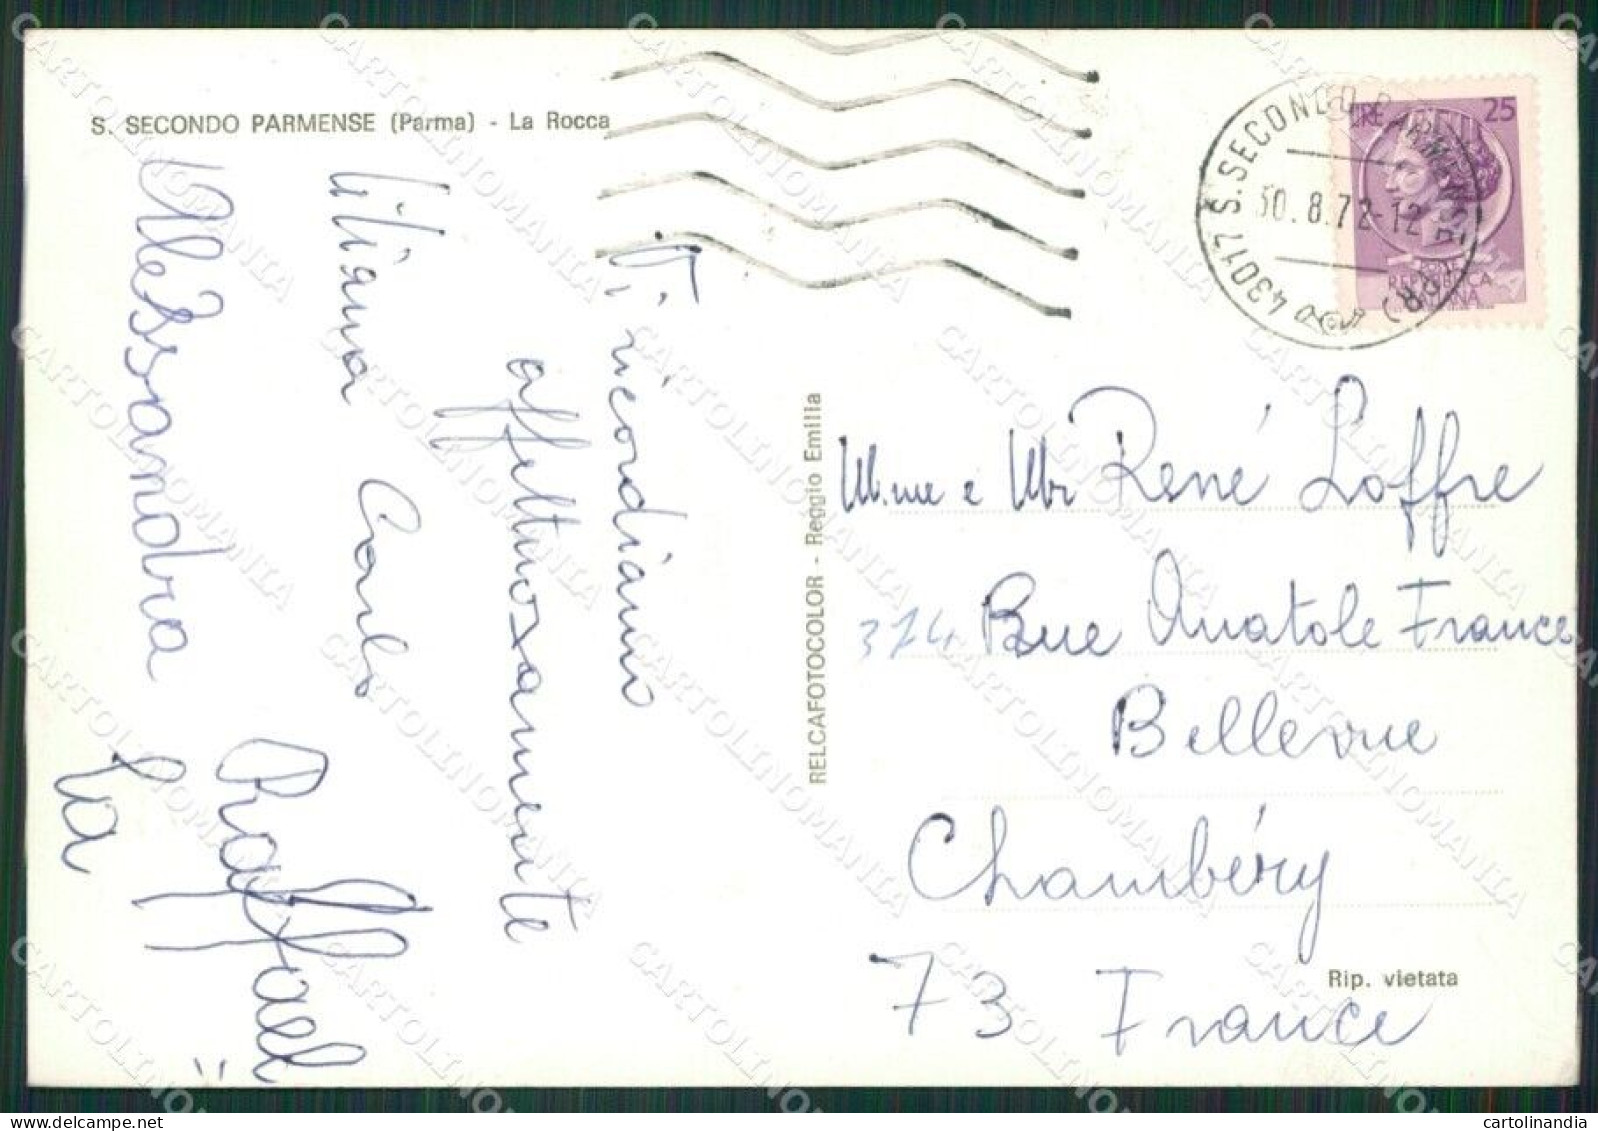 S. SECONDO PARMENSE (Parma) - La Rocca
Vi ricordiamo
affettuosamente
Liliana Carlo
Alessandra
Raffaella
RELCAFOTOCOLOR - Reggio Emilia
LIRE 25
REPUBBLICA
ITALIANA
43017 S.SECONDO PARMENSE (PR)
30.8.72-12
M.me e Mr René Loffre
374 Rue Anatole France
Bellevue
Chambéry
73 France
Rip. vietata
CARTOLINOMANIA
cartolinandia